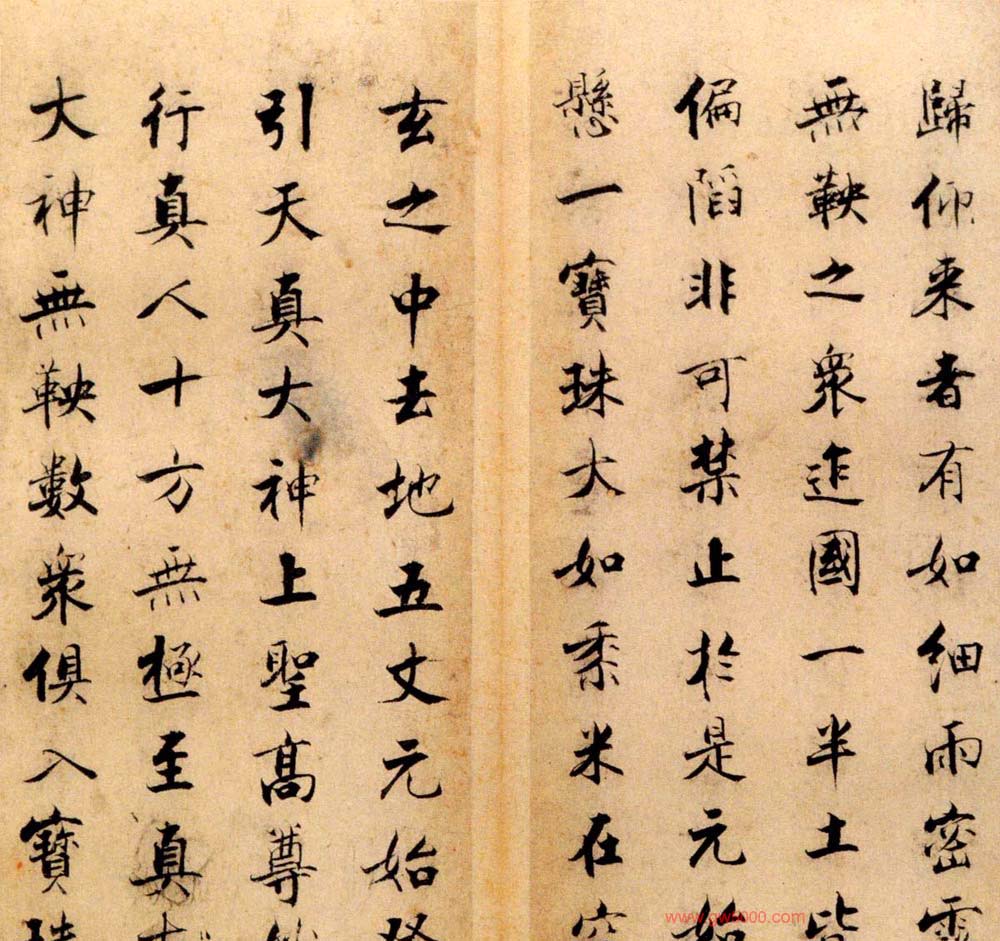 歸仰来者有如細雨密
無鞅之衆迮國一半土
偏陷非可禁止於是元始
懸一寶珠大如黍米在空
玄之中去地五丈元始登
引天真大神上聖髙尊
行真人十方無極至真
大神無鞅數衆俱入寶
www.gw5000.com